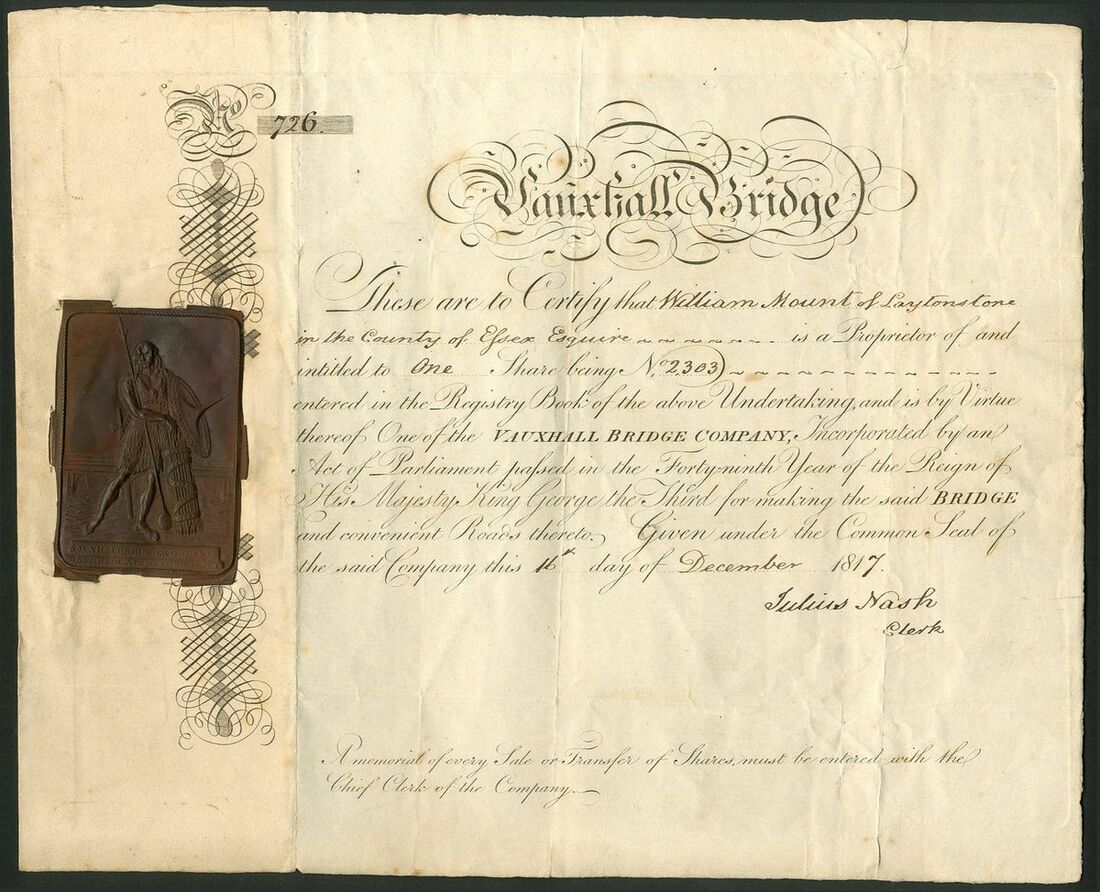 No 726.
Vauxhall Bridge
These are to Certify that William Mount of Laytonstone
in the County of Essex Esquire is a Proprietor of and
intitled to One Share being No. 2303
entered in the Registry Book of the above Undertaking, and is by Virtue
thereof One of the VAUXHALL BRIDGE COMPANY, Incorporated by an
Act of Parliament passed in the Forty-ninth Year of the Reign of
His Majesty King George the Third for making the said BRIDGE
and convenient Roads thereto. Given under the Common Seal of
the said Company this 16th day of December 1817.
Julius Nash
Clerk
A memorial of every Sale or Transfer of Shares, must be entered with the
Chief Clerk of the Company.
VAUXHALL BRIDGE COMPANY